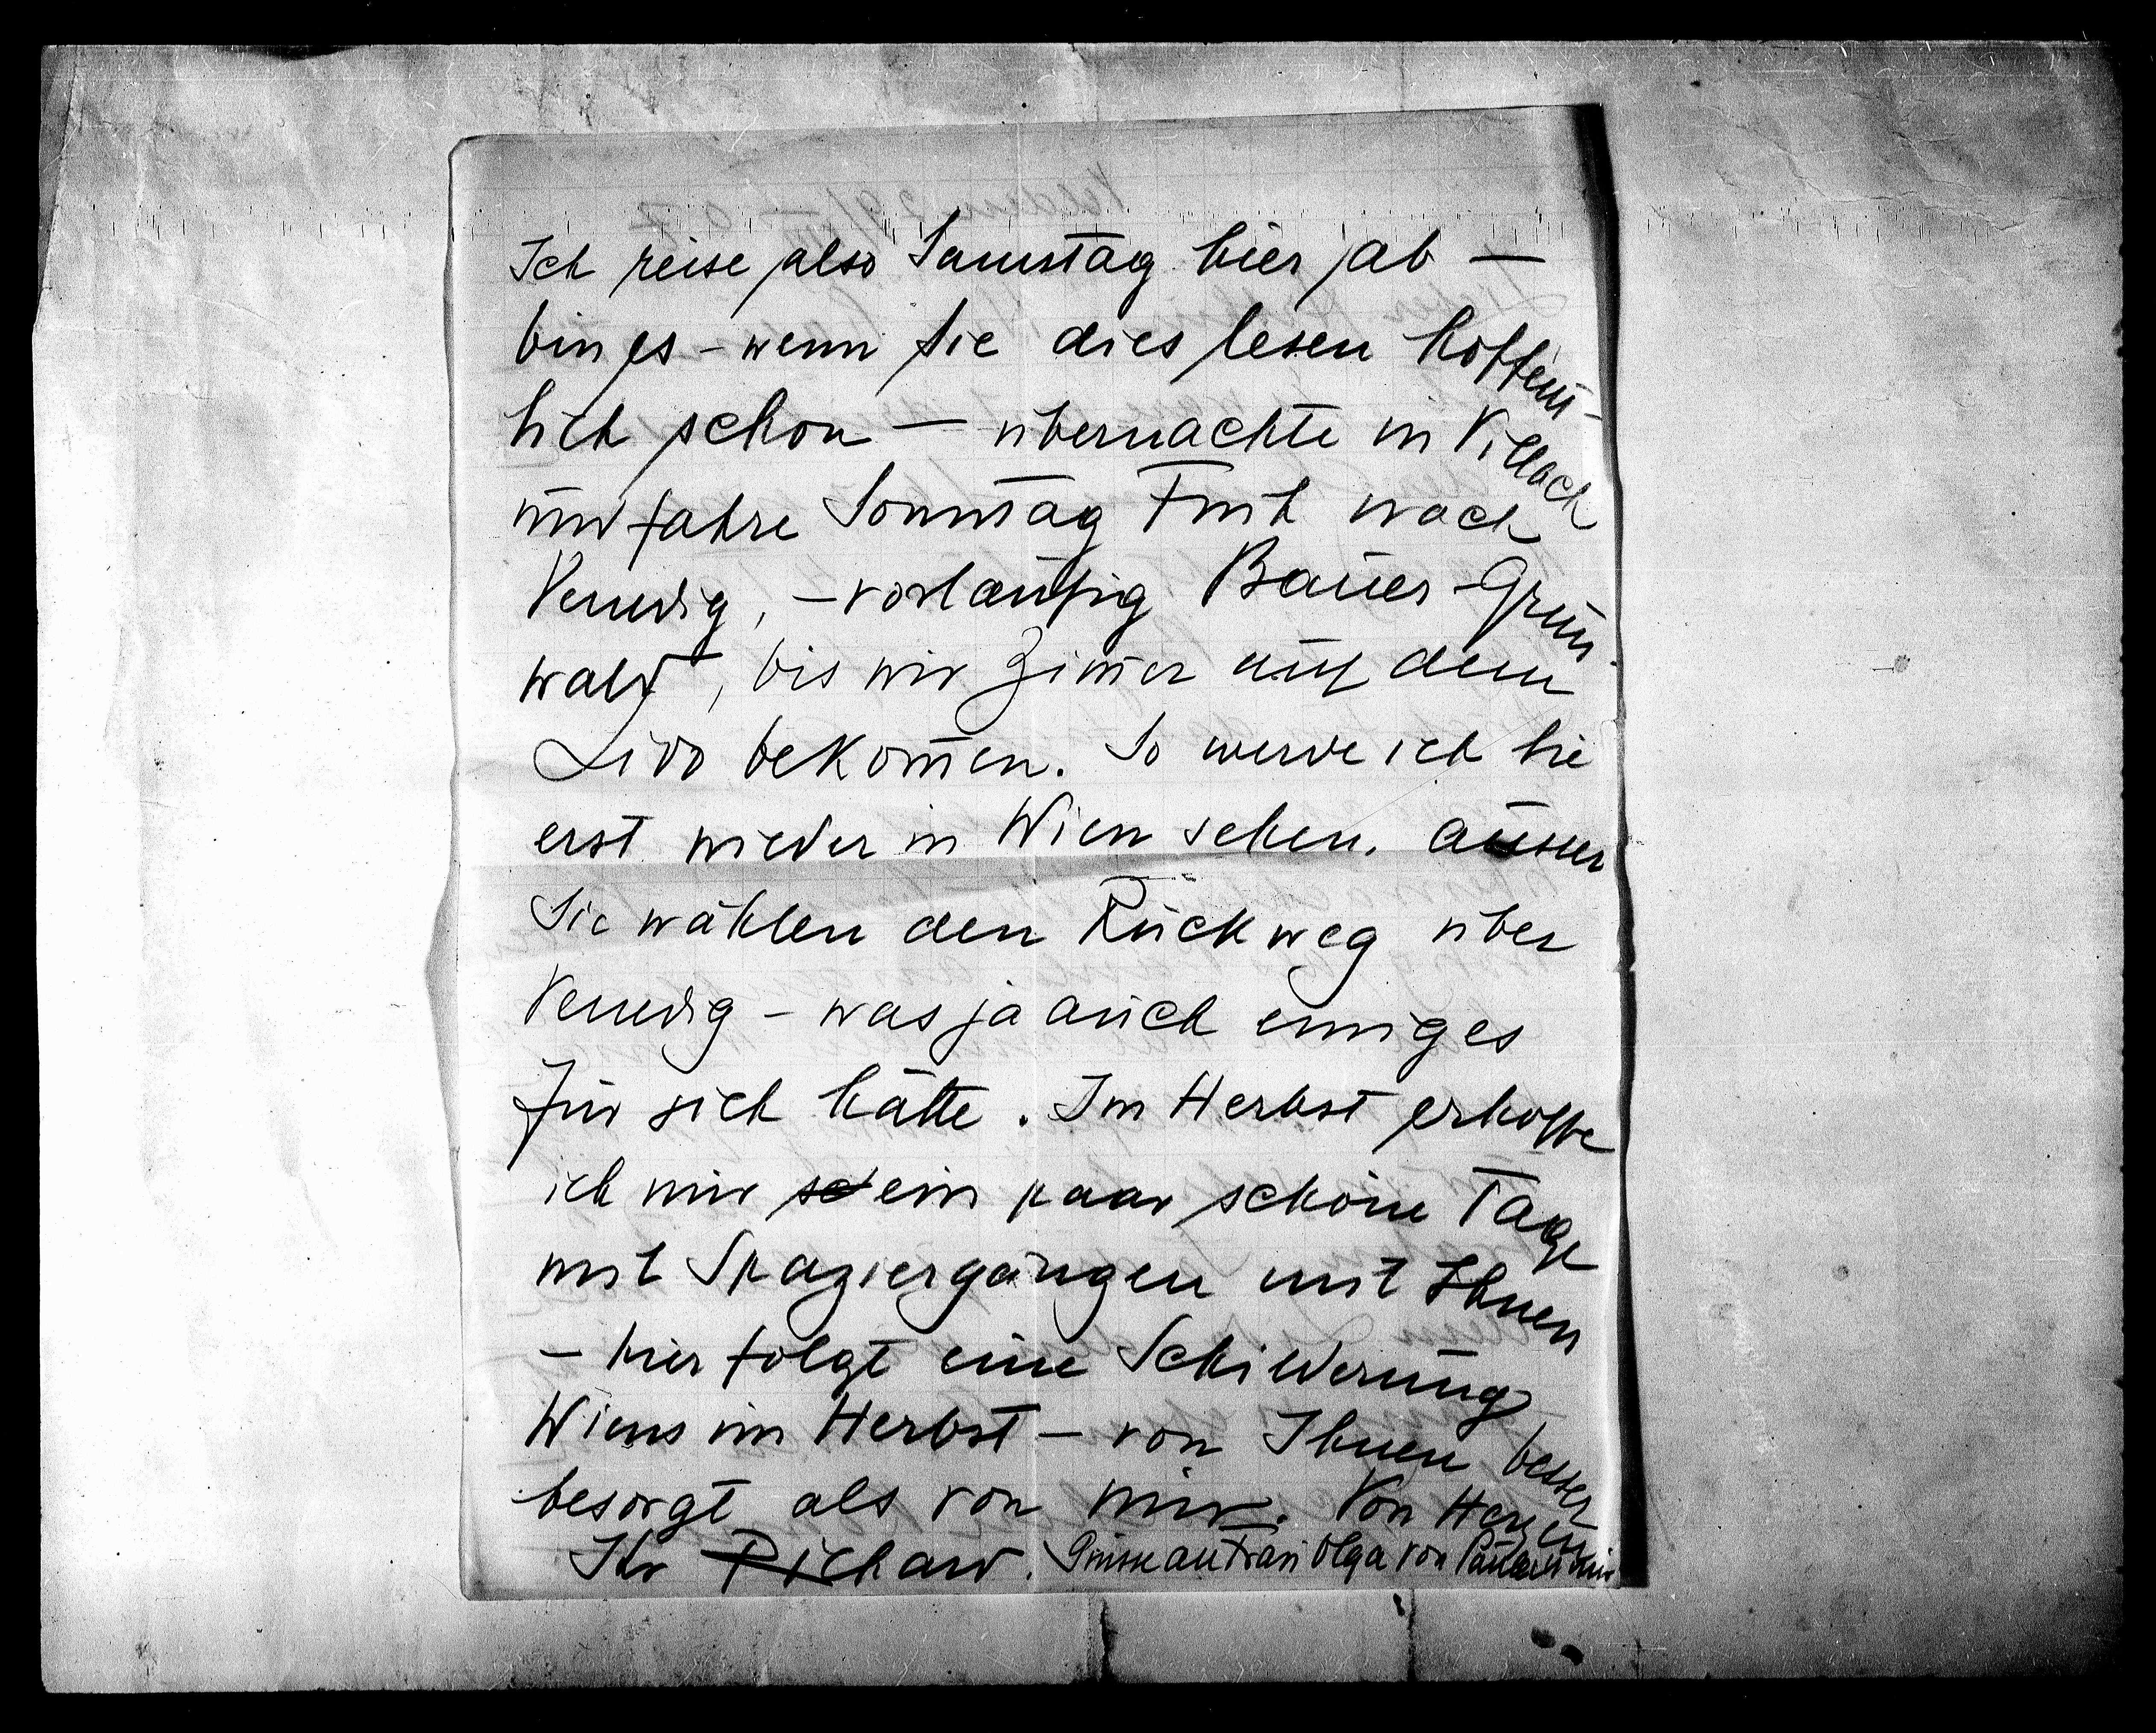 Ich reise also Samstag hier ab —
bin es – wenn Sie dies lesen hoffent-
lich schon — übernachte in Villach
und fahre Sonntag Früh nach
Venedig, – vorläufig Bauer-Grün-
wald, bis wir Zim̄er auf dem
Lido bekom̄en. So werde ich Sie
erst wieder in Wien sehen. ausser
Sie wählen den Rückweg über
Venedig – was ja auch einiges
für sich hätte. Im Herbst erhoffe
ich mir ein paar schöne Tage
mit Spaziergängen mit Ihnen
– hier folgt eine Schilderung
Wiens im Herbst – von Ihnen besser
besorgt als von mir. Von Herzen
Ihr Richard. Grüsse an Frau Olga von Paula u mir